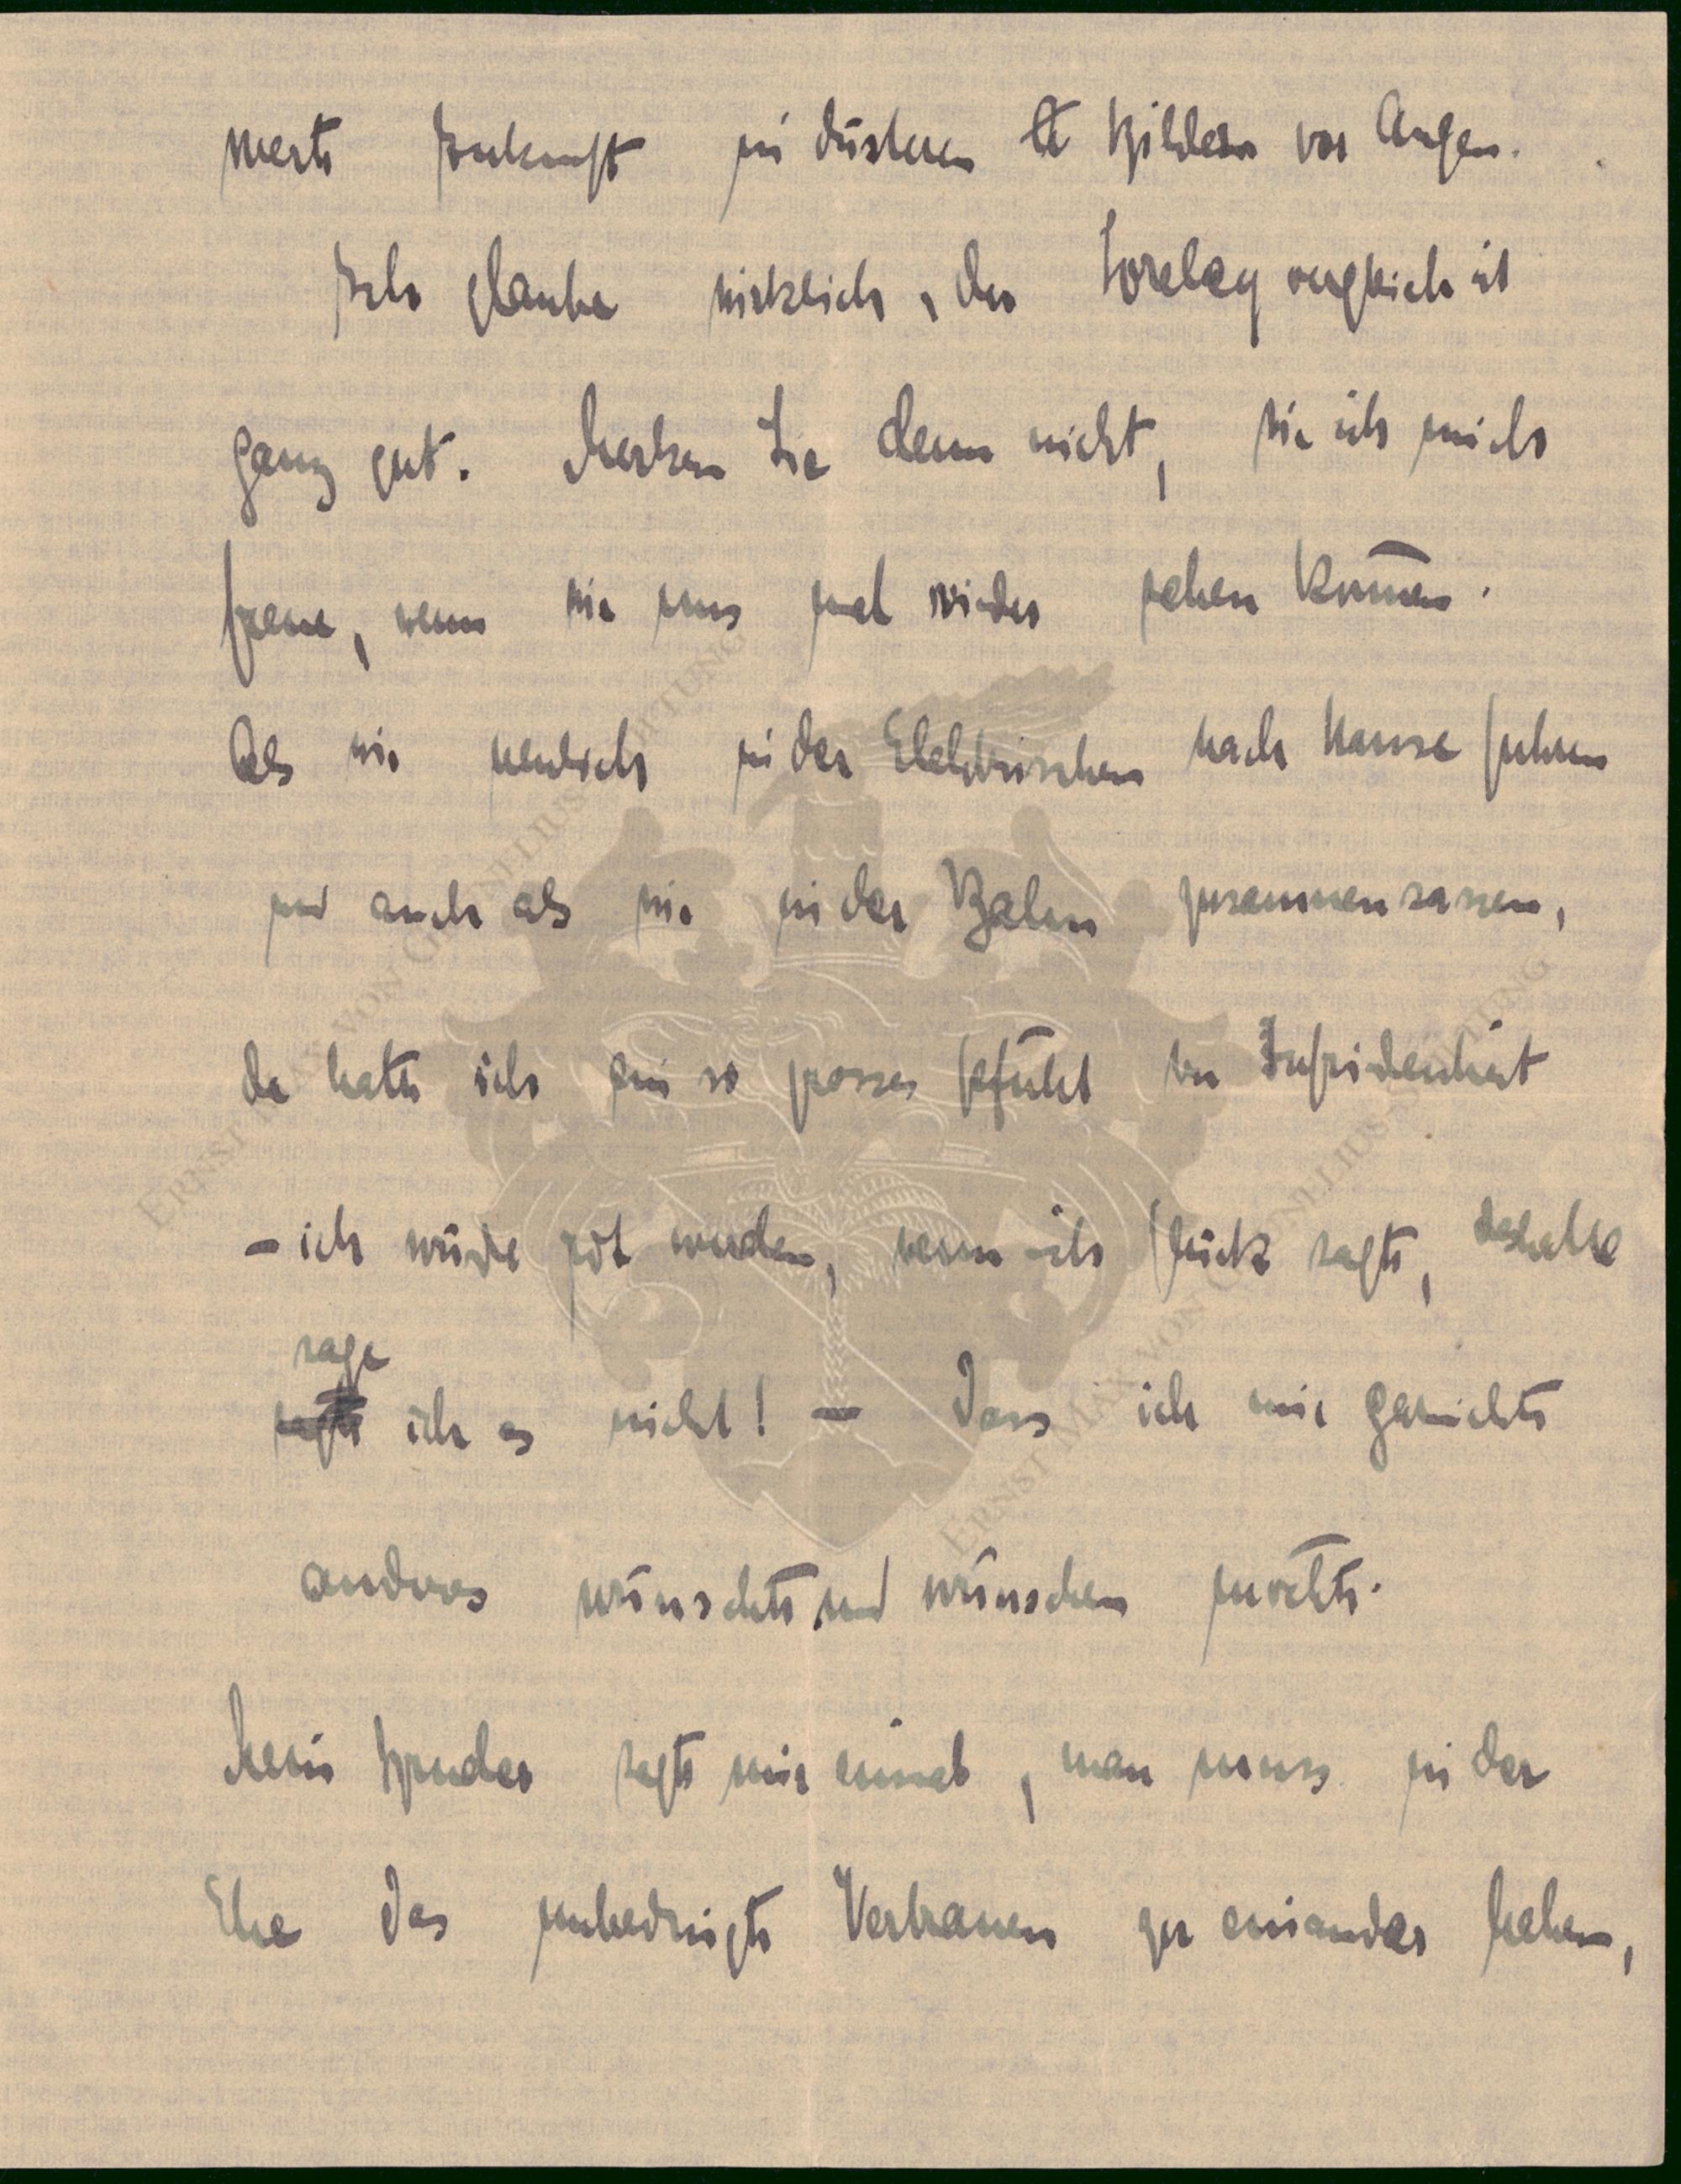 werte Zukunft in düsteren Bildern vor Augen.
Ich glaube wirklich, der Loreley vergleich ist
ganz gut. Merken Sie denn nicht, wie ich mich
freue, wenn wir uns mal wieder sehen können.
Als wir neulich in der Elektrischen nach Hause fuhren
und auch als wir in der Bahn zusammensassen,
da hatte ich ein so grosses Gefühl von Zufridenheit
– ich würde rot werden, wenn ich Glück sagte, deshalb
sage
sagte ich es nicht! – Dass ich mir garnichts
anderes wünschte und wünschen möchte.
Mein Bruder sagte mir einmal, man muss in der
Ehe das unbedingte Vertrauen zu einander haben,
ERNST MAX VON GRUNELIUS-STIFTUNG
ERNST MAX VON GRUNELIUS-STIFTUNG